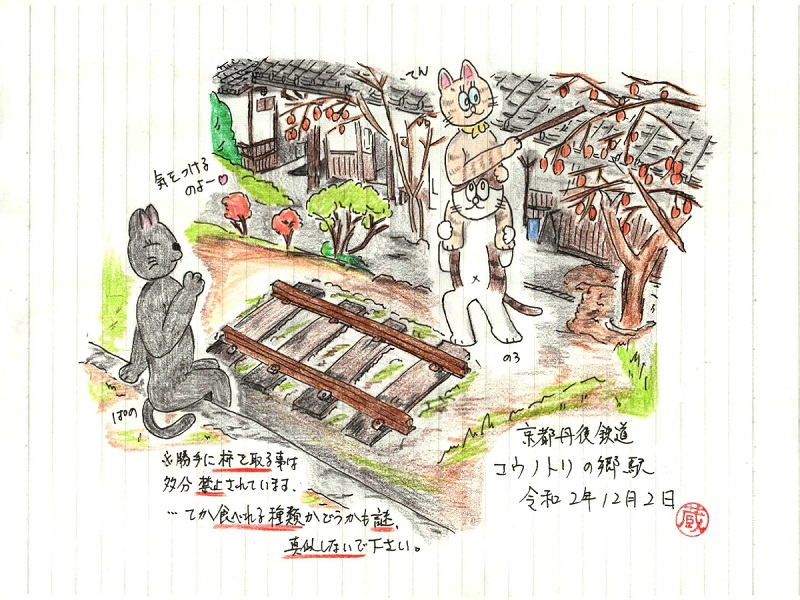 てん
気をつける
のよー♡
のろ
ぱの
※勝手に柿を取る事は
多分禁止されています、
…てか食べれる種類かどうかも謎、
真似しないで下さい。
京都丹後鉄道
コウノトリの郷駅
令和2年12月2日
蔵